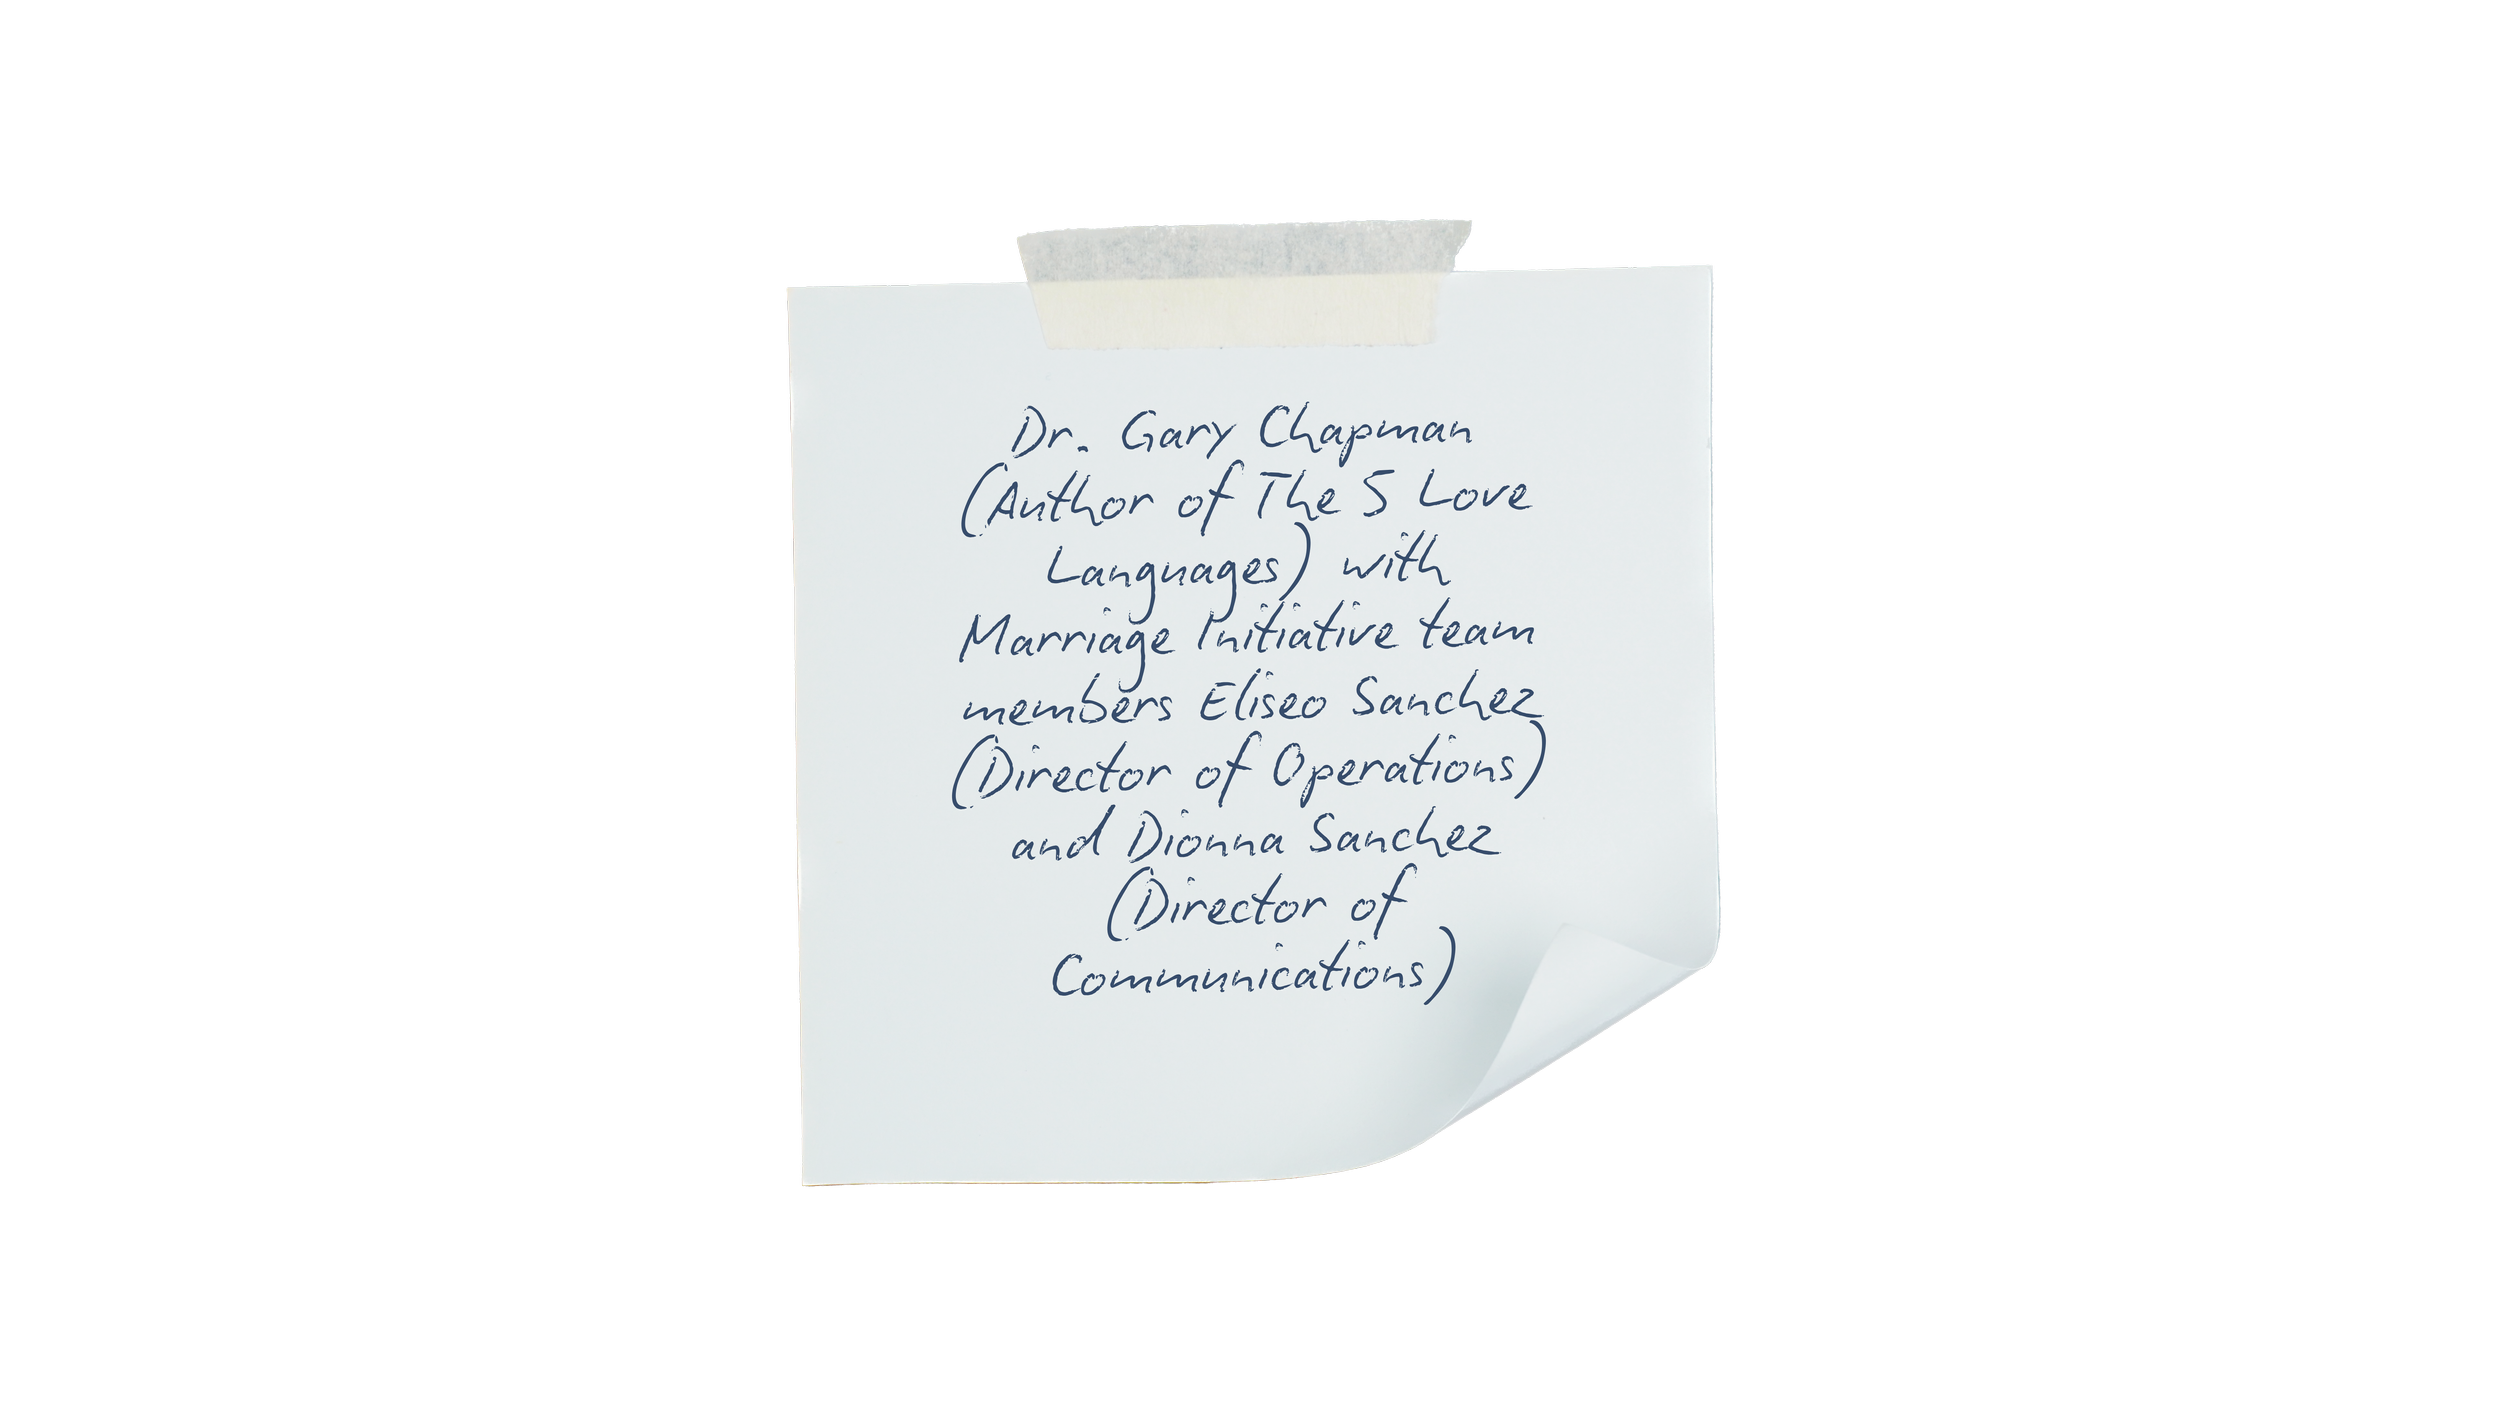 Dr. Gary Chapman
(Author of The 5 Love
Languages) with
Marriage Initiative team
members Eliseo Sanchez
(Director of Operations)
and Dionna Sanchez
(Director of
Communications)